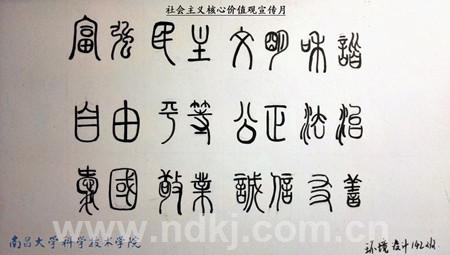 社会主义核心价值观宣传月
富强 民主 文明 和谐
自由 平等 公正 法治
爱國 敬業 誠信 友善
www.ndkj.com.cn
南昌大学科学技术学院
环境设计142班